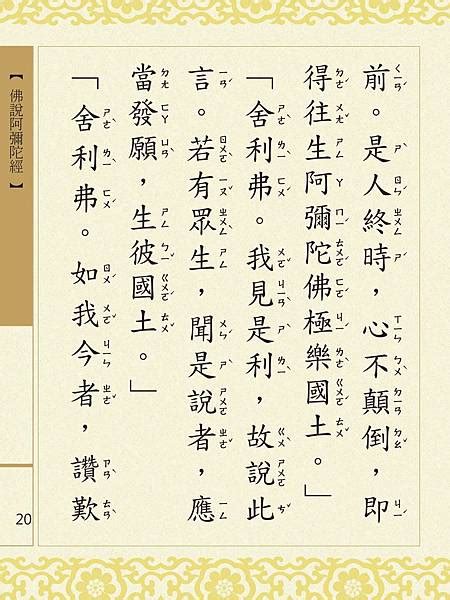 前。是人終時，心不顛倒，即
得往生阿彌陀佛極樂國土。」
「舍利弗。我見是利，故說此
言。若有眾生，聞是說者，應
當發願，生彼國土。」
「舍利弗。如我今者，讚歎
【佛說阿彌陀經】
20